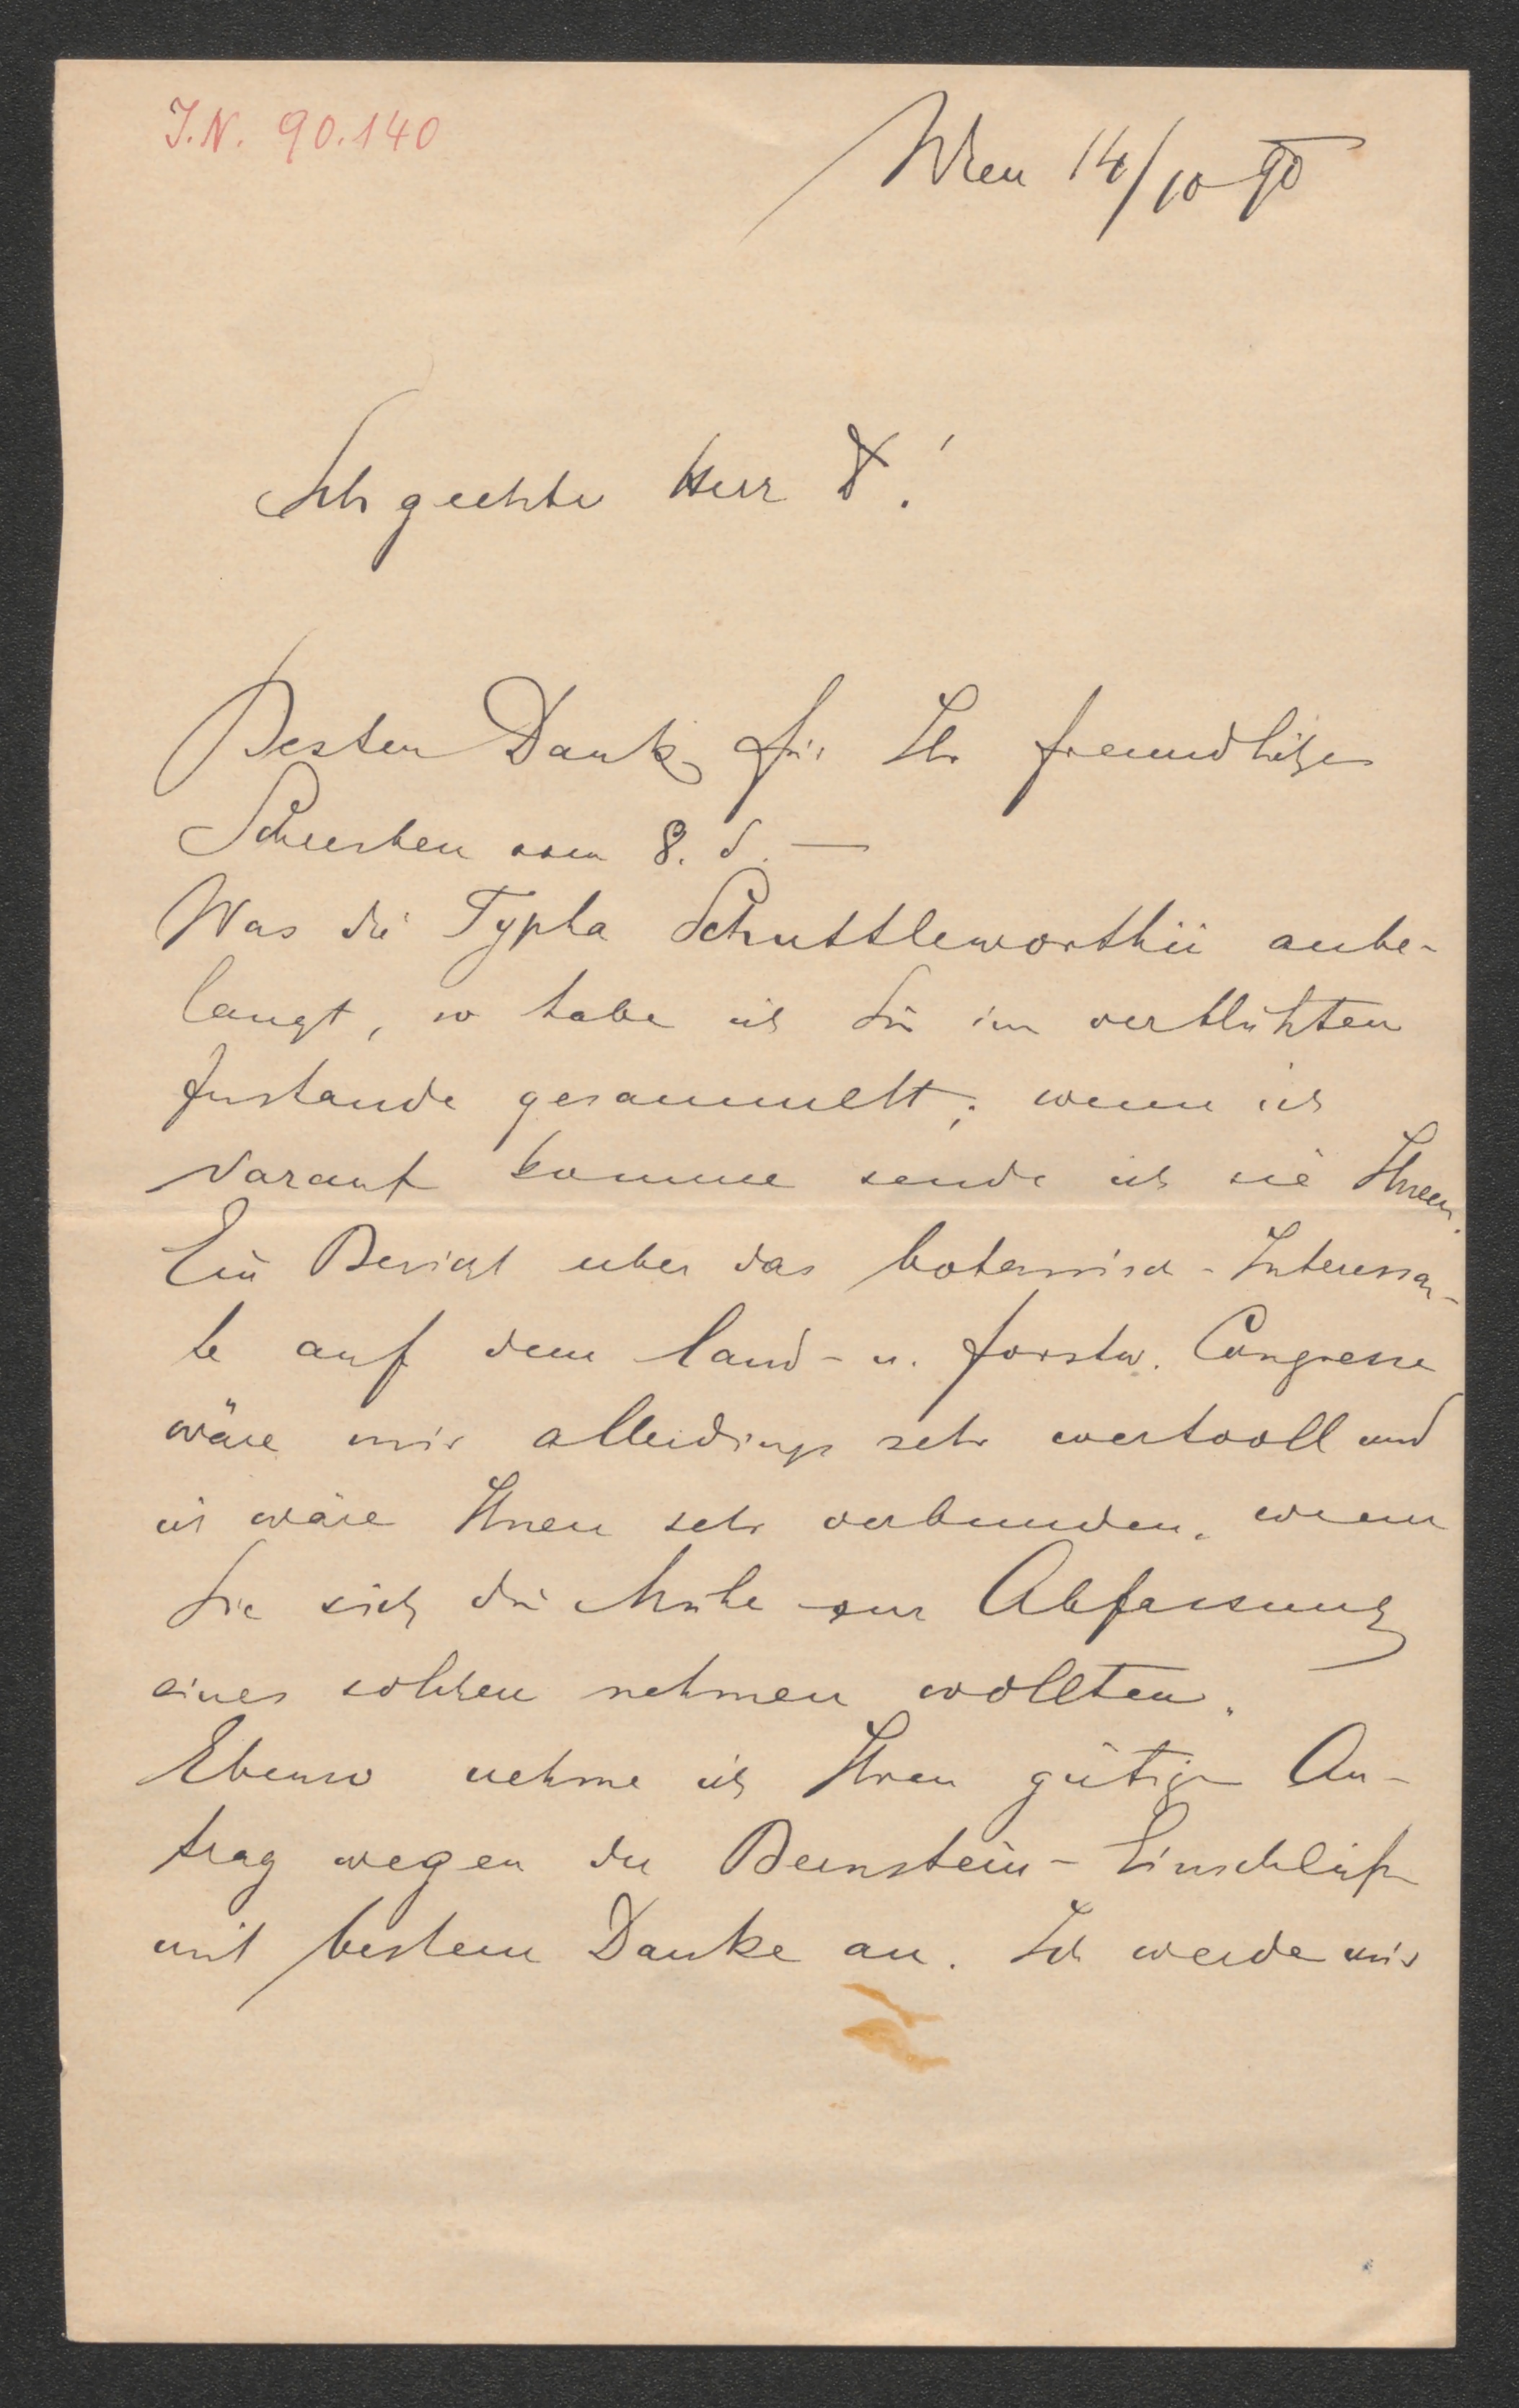 I.N. 90.140
Wien 14/10 90
Sehr geehrter Herr Dr.!
Besten Dank für Ihr freundliches
Schreiben vom 8. d. —
Was die Typha Schuttleworthii anbe-
langt, so habe ich sie im verblühten
Zustande gesammelt; wenn ich
darauf komme sende ich sie Ihnen.
Ein Bericht über das botanisch-Interessan-
te auf dem land- u. forstw. Congresse
wäre mir allerdings sehr wertvoll und
ich wäre Ihnen sehr verbunden, wenn
Sie sich die Mühe zur Abfassung
eines solchen nehmen wollten.
Ebenso nehme ich Ihren gütigen An-
trag wegen der Bernstein-Einschlüße
mit bestem Danke an. Ich werde mir